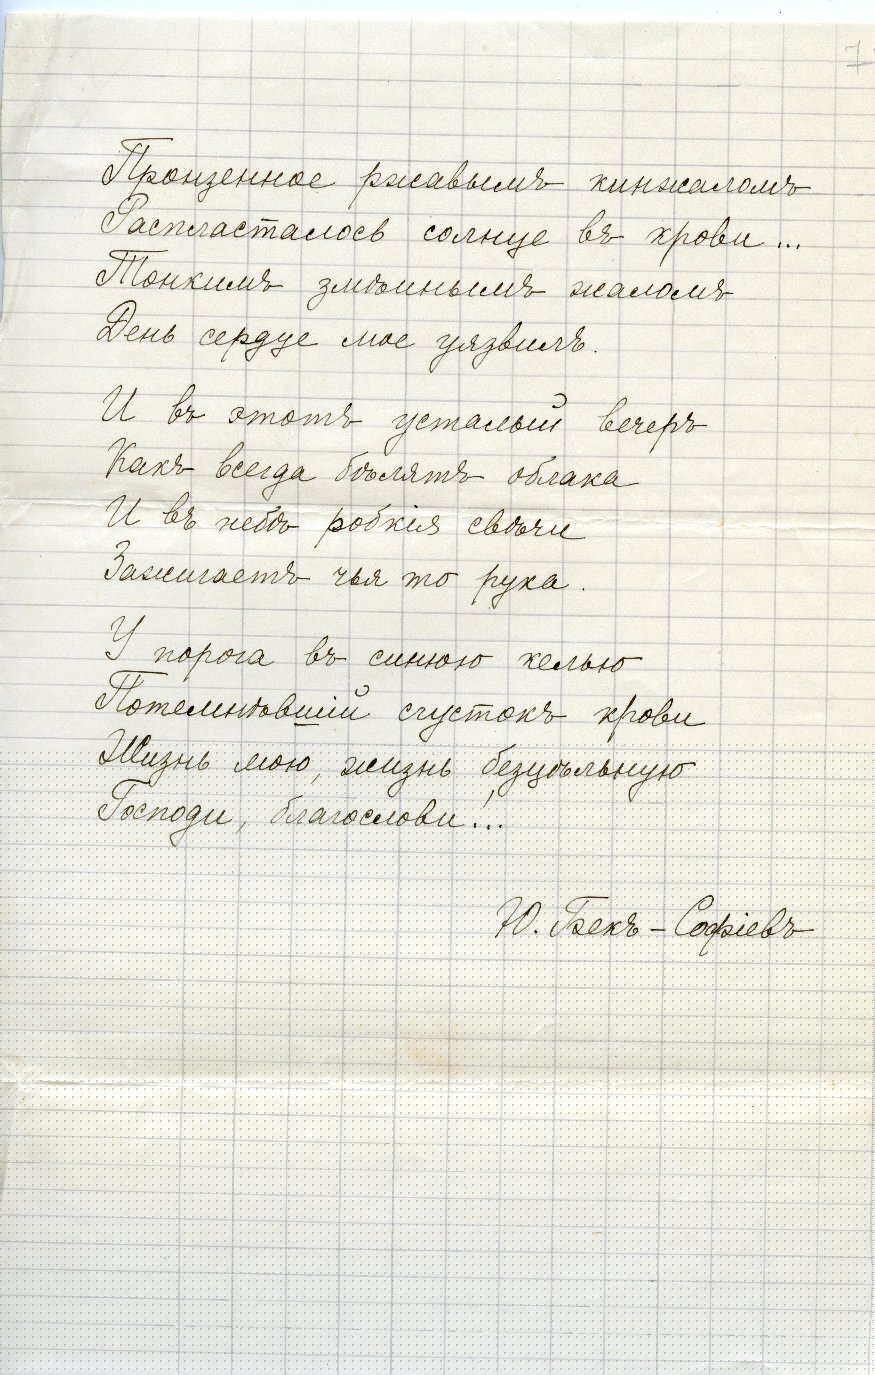 Пронзенное ржавымъ кинжаломъ
Распласталось солнце въ крови...
Тонкимъ змѣинымъ жаломъ
День сердце мое уязвилъ.
И въ этотъ усталый вечеръ
Какъ всегда бѣлятъ облака
И въ небѣ робкія свѣчи
Зажигаетъ чья то рука.
У порога въ синюю келью
Потемнѣвшій сгустокъ крови
Жизнь мою, жизнь безцѣльную
Господи, благослови!..
Ю. Бекъ-Софіевъ